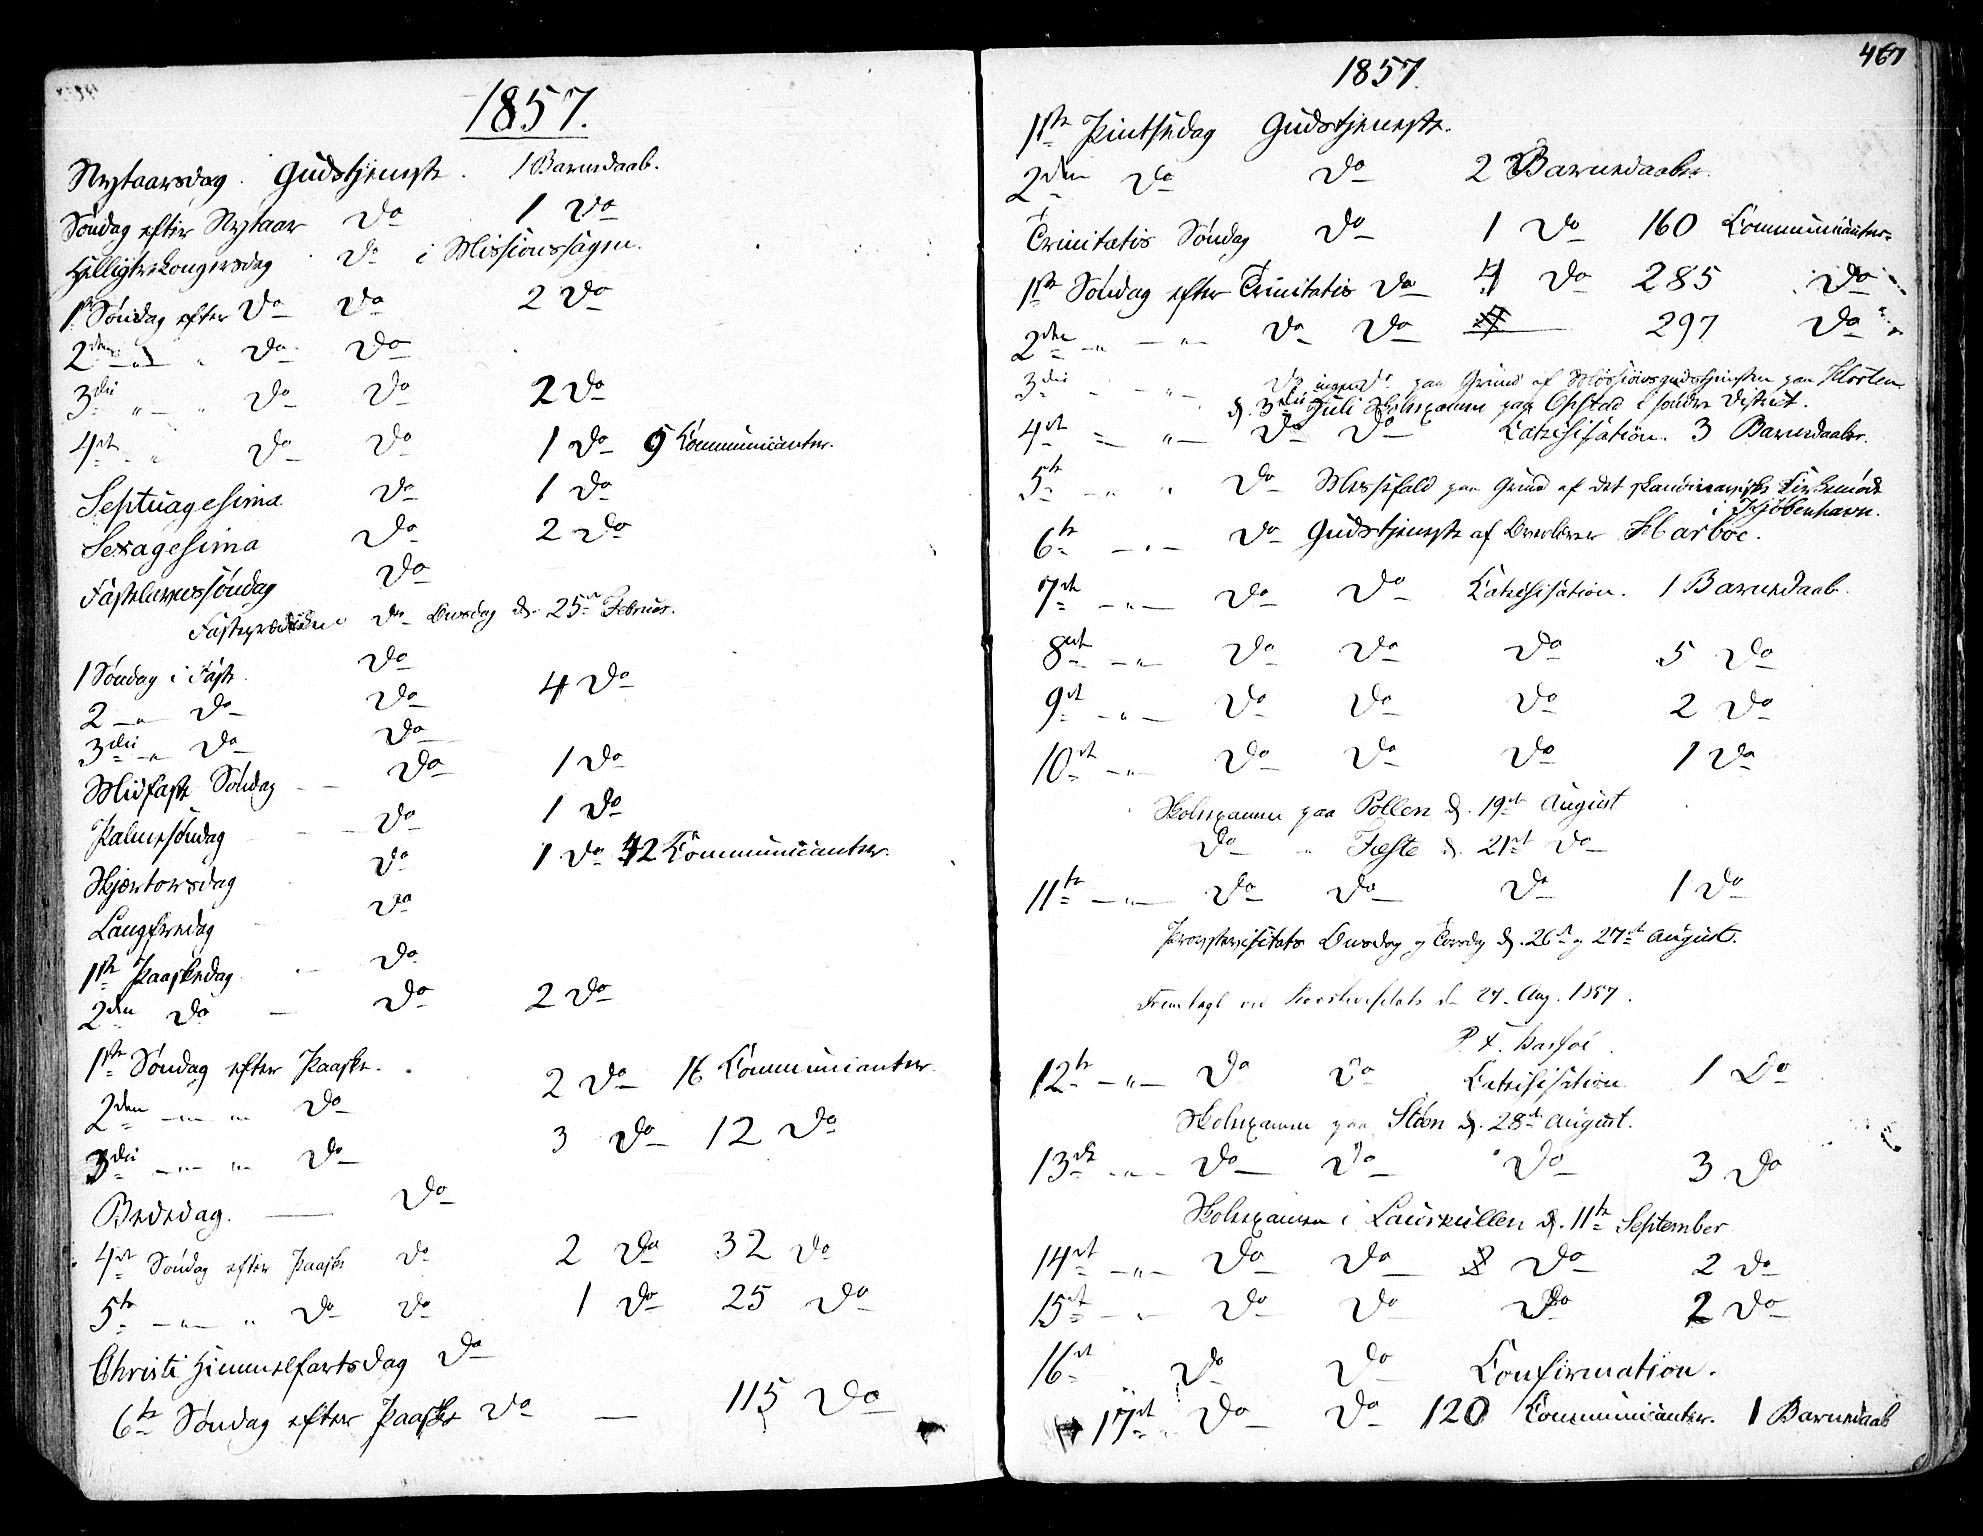 1857.
Nytaarsdag. Gudstjeneste. 1 Barnedaab.
Søndag efter Nytaar Do 1 Do
Helligtrekongersdag Do i Missionssagen.
1ste Søndag efter Do Do 2 Do
2den " " Do Do
3die " " Do Do 2 Do
4de " Do Do 1 Do 9 Communicanter.
Septuagesima Do 1 Do
Sexagesima Do 2 Do
Fastelavnssøndag Do
Fasteprædiken Do Onsdag d. 25de Februar.
1 Søndag i Faste Do
2 " Do Do 4 Do
3die " Do Do
Midfaste Søndag Do 1 Do
Palmesøndag Do 1 Do
Skjærtorsdag Do 1 Do 42 Communicanter.
Langfredag Do
1ste Paaskedag Do
2den Do Do 2 Do
1ste Søndag efter Paaske. 2 Do 16 Communicanter
2den " " Do 3 Do 12 Do
3die " " Do
Bededag. Do
4de Søndag efter Paaske Do 2 Do 32 Do
5te " " Do Do 1 Do 25 Do
Christi Himmelfartsdag Do
6te Søndag efter Paaske Do — 115 Do
467
1857.
1ste Pintsedag Gudstjeneste.
2den Do Do 2 Barnedaabe.
Trinitatis Søndag Do 1 Do 160 Communicanter
1ste Søndag efter Trinitatis Do 4 Do 285 Do
2den " " Do Do 297 Do
3die " Do ingen Do paa Grund af Missionsgudstjenesten paa
d. 3die Juli Skolexamen paa Opstad i søndre District.
4de " Do Do Catechisation. 3 Barnedaabe.
5te " " Do Messefald paa Grund af det skandinaviske Kirkemøde
i Kjöbenhavn.
6te " Do Gudstjeneste af Overlærer Harboe.
7de " Do Do Catechisation. 1 Barnedaab.
8de " Do Do Do 5 Do
9de " Do Do Do 2 Do
10de " Do Do Do 1 Do
Skolexamen paa Pollen d. 19de August
Do " Fæste d. 21de Do
11te " Do Do Do 1 Do
Provstevisitats Onsdag og Torsdag d. 26de og 27de August.
Fremlagt ved Provstevisitats d 27. Aug. 1857.
12te " Do Do Catechisation 1 Do
Skolexamen paa Støen d. 28de August.
13de " Do Do Do 3 Do
Skolexamen i Laurkullen d. 11te September
14de " Do Do Do 2 Do
15de " Do Do Do 2 Do
16de Do Do Confirmation.
17de " Do Do 120 Communicanter. 1 Barnedaab